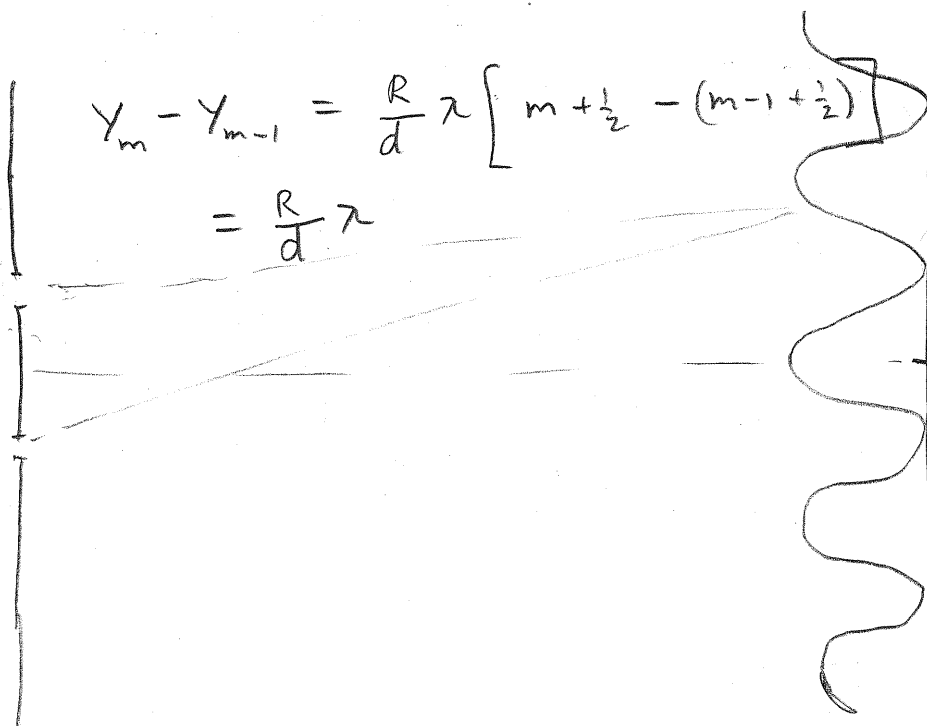 Y_m - Y_{m-1} = \frac{R}{d} λ [ m + \frac{1}{2} - (m-1 + \frac{1}{2}) ]
= \frac{R}{d} λ